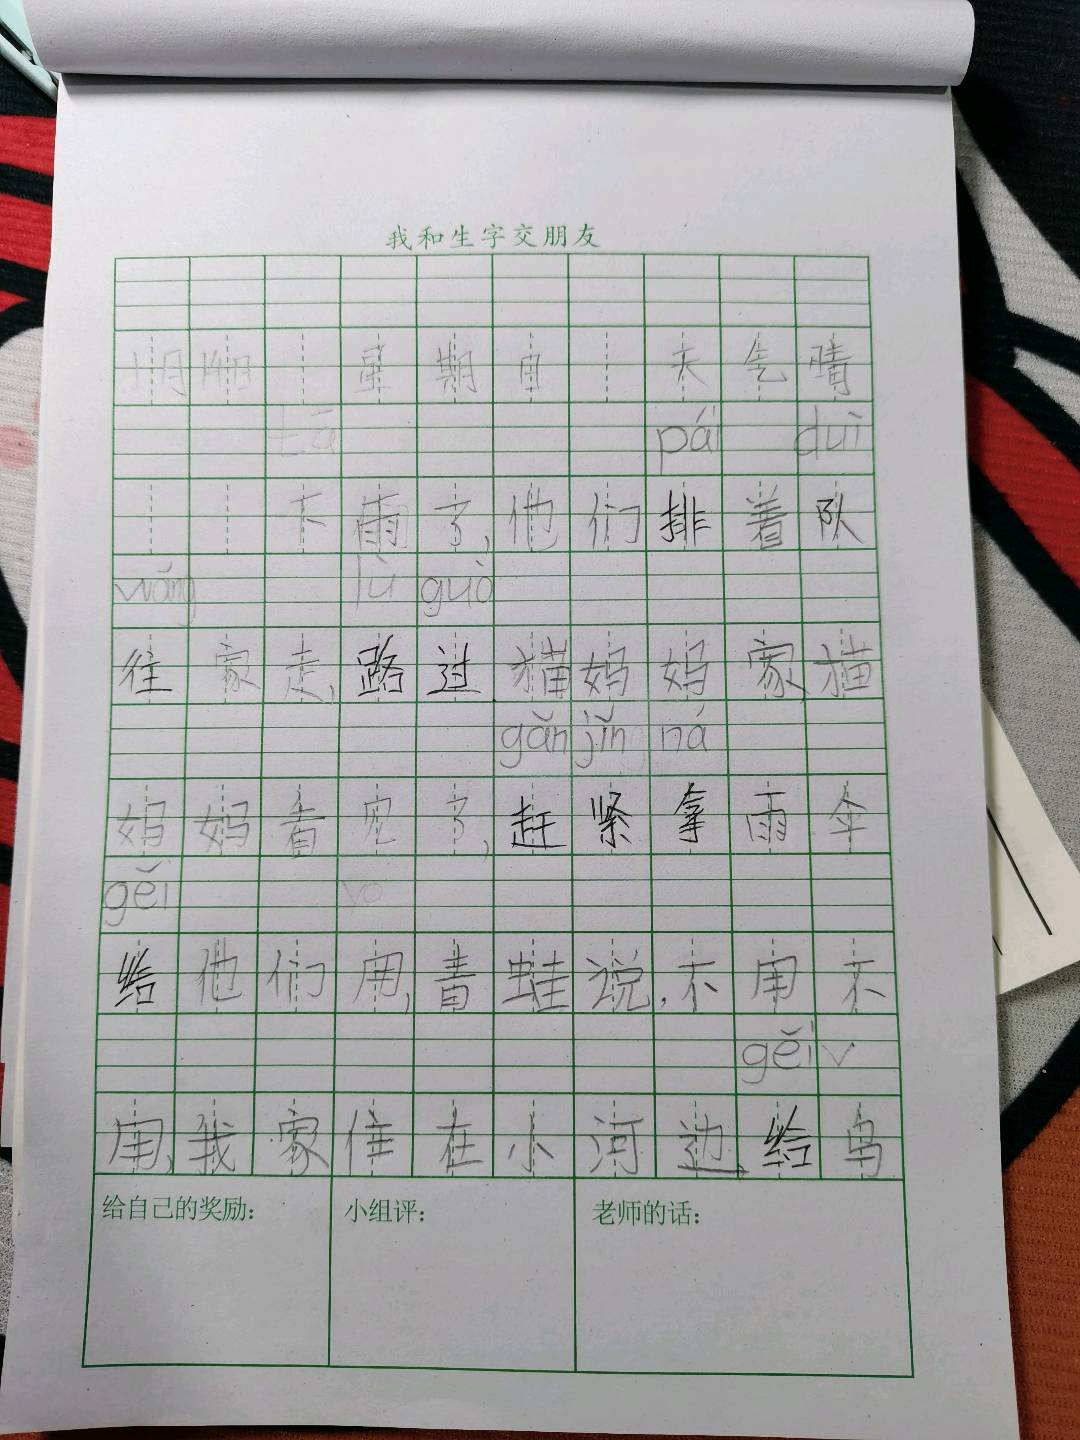 我和生字交朋友
11月14日 星期日 天气晴
tā pái duì
下雨了，他们排着队
wǎng lù guò
往家走，路过猫妈妈家，猫
gǎn jǐn ná
妈妈看见了，赶紧拿雨伞
gěi
给他们用，青蛙说，不用不
gěi
用，我家住在小河边，给乌
给自己的奖励：
小组评：
老师的话：